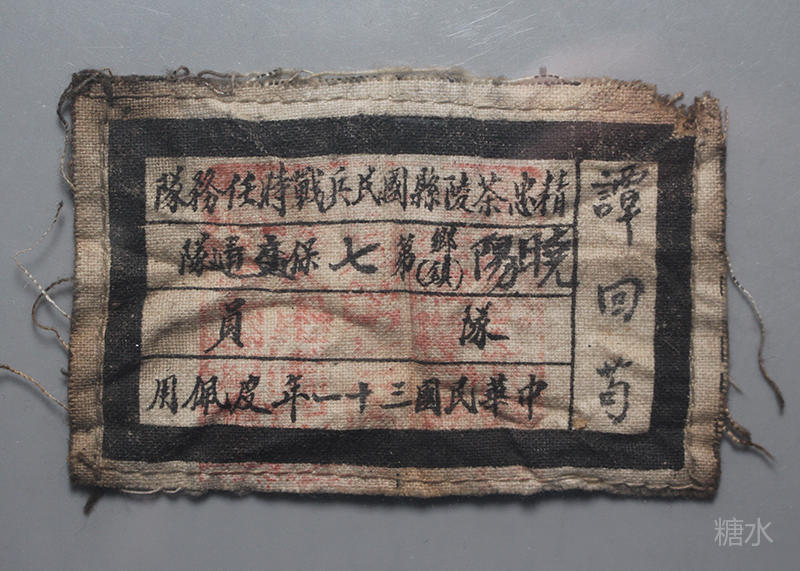 譚回苟
精忠茶陵縣國民兵戰時任務隊
曉陽鄉(鎮)第七保交通隊
隊員
中華民國三十一年度佩用
糖水